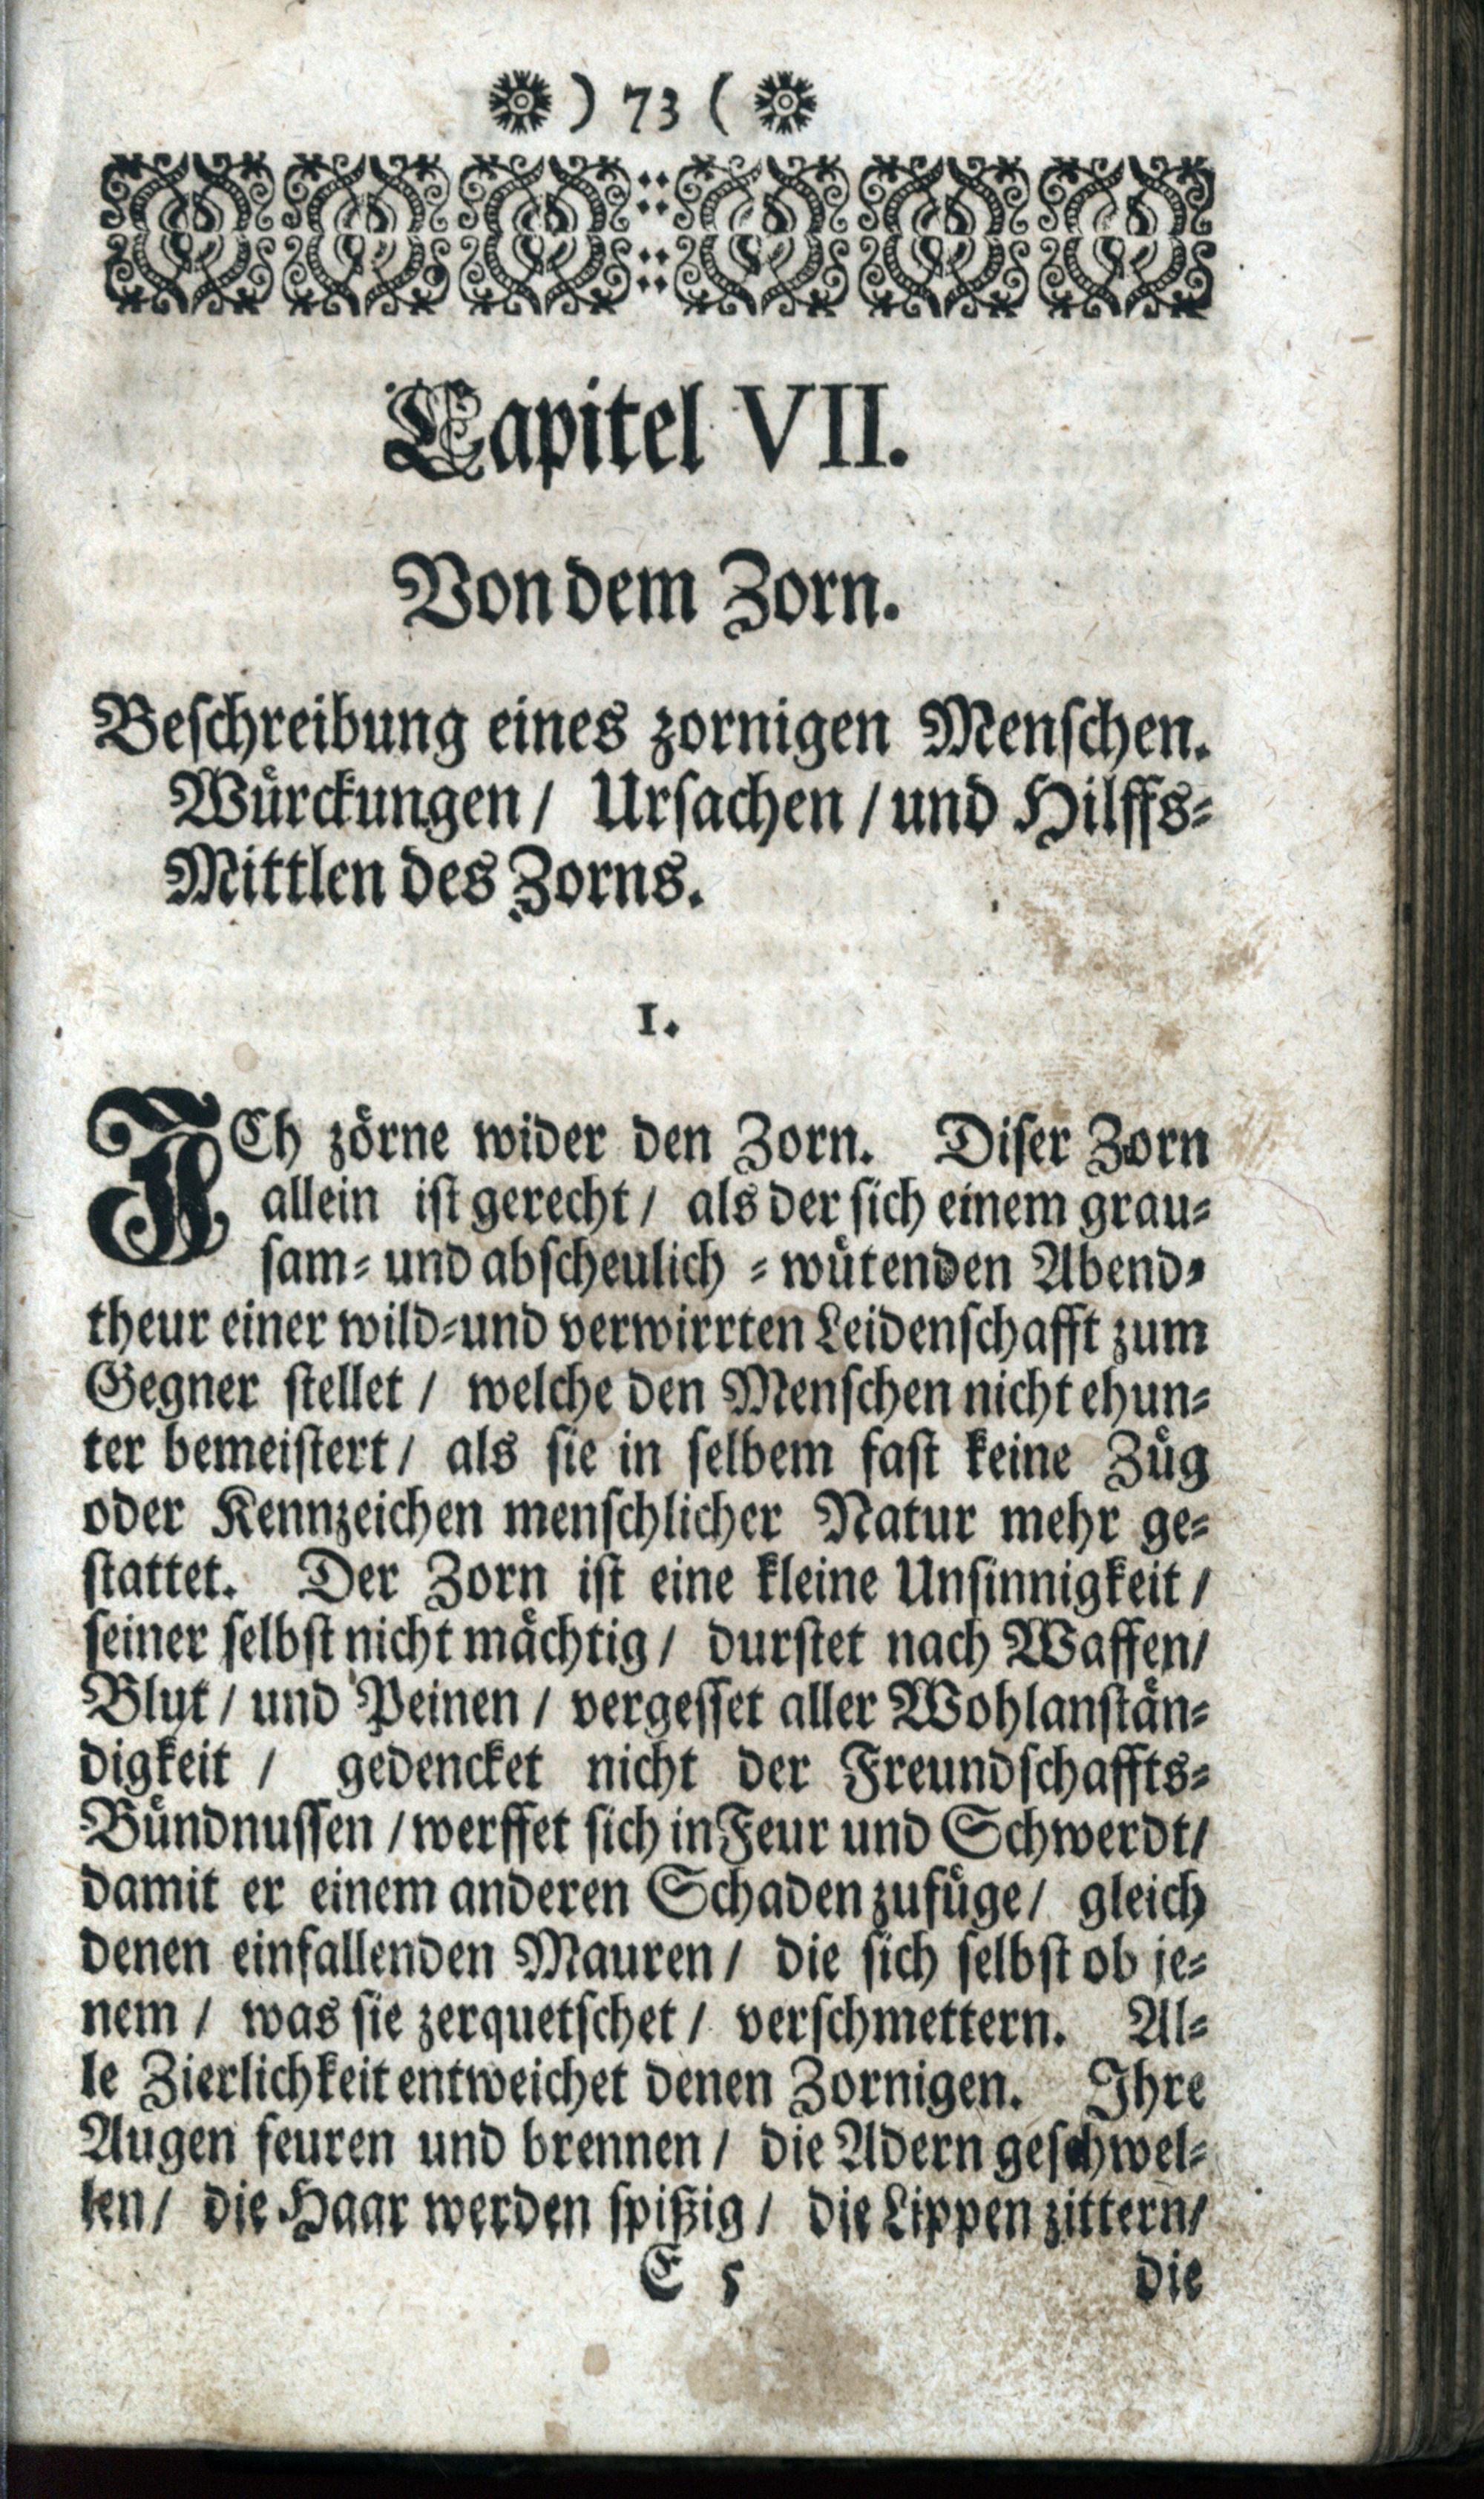 ) 73 (
Capitel VII.
Von dem Zorn.
Beschreibung eines zornigen Menschen.
Würckungen / Ursachen / und Hilffs-
Mittlen des Zorns.
1.
ICh zörne wider den Zorn. Diser Zorn
allein ist gerecht / als der sich einem grau-
sam- und abscheulich - wütenden Abend-
theur einer wild- und verwirrten Leidenschafft zum
Gegner stellet / welche den Menschen nicht ehun-
ter bemeistert / als sie in selbem fast keine Züg
oder Kennzeichen menschlicher Natur mehr ge-
stattet. Der Zorn ist eine kleine Unsinnigkeit /
seiner selbst nicht mächtig / durstet nach Waffen /
Blut / und Peinen / vergesset aller Wohlanstän-
digkeit / gedencket nicht der Freundschaffts-
Bündnussen / werffet sich in Feur und Schwerdt /
damit er einem anderen Schaden zufüge / gleich
denen einfallenden Mauren / die sich selbst ob je-
nem / was sie zerquetschet / verschmettern. Al-
le Zierlichkeit entweichet denen Zornigen. Ihre
Augen feuren und brennen / die Adern geschwel-
len / die Haar werden spitzig / die Lippen zittern /
E 5 die